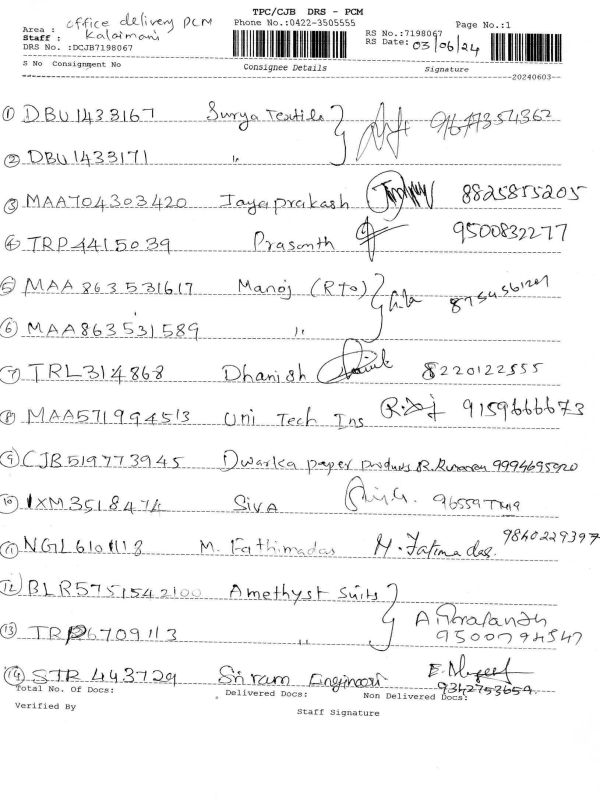 TPC/CJB DRS - PCM
Area : office delivery PCM Phone No.:0422-3505555 Page No.:1
Staff : Kalaimani RS No.:7198067
DRS No. :DCJB7198067 RS Date: 03/06/24
S No Consignment No Consignee Details Signature
20240603
1 DBU1433167 Surya Textile
2 DBU1433171 "
3 MAA704303420 Jayaprakash 8825855205
4 TRP4415039 Prasanth 9500832277
5 MAA863531617 Manoj (RTO)
6 MAA863531589 "
7 TRL314868 Dhanish 8220122555
8 MAA571994513 Uni Tech Ins 9159666673
9 CJB519773945 Dwarka paper products
10 IXM3518474 Siva
11 NGL6101118 M. Fathimadas M. Fatima das. 9840229397
12 BLR5751542100 Amethyst Suits
13 TRP6709113 "
14 STR 443729 Sri ram Engineers 9342753659.
Total No. Of Docs: Delivered Docs: Non Delivered Docs:
Verified By Staff Signature